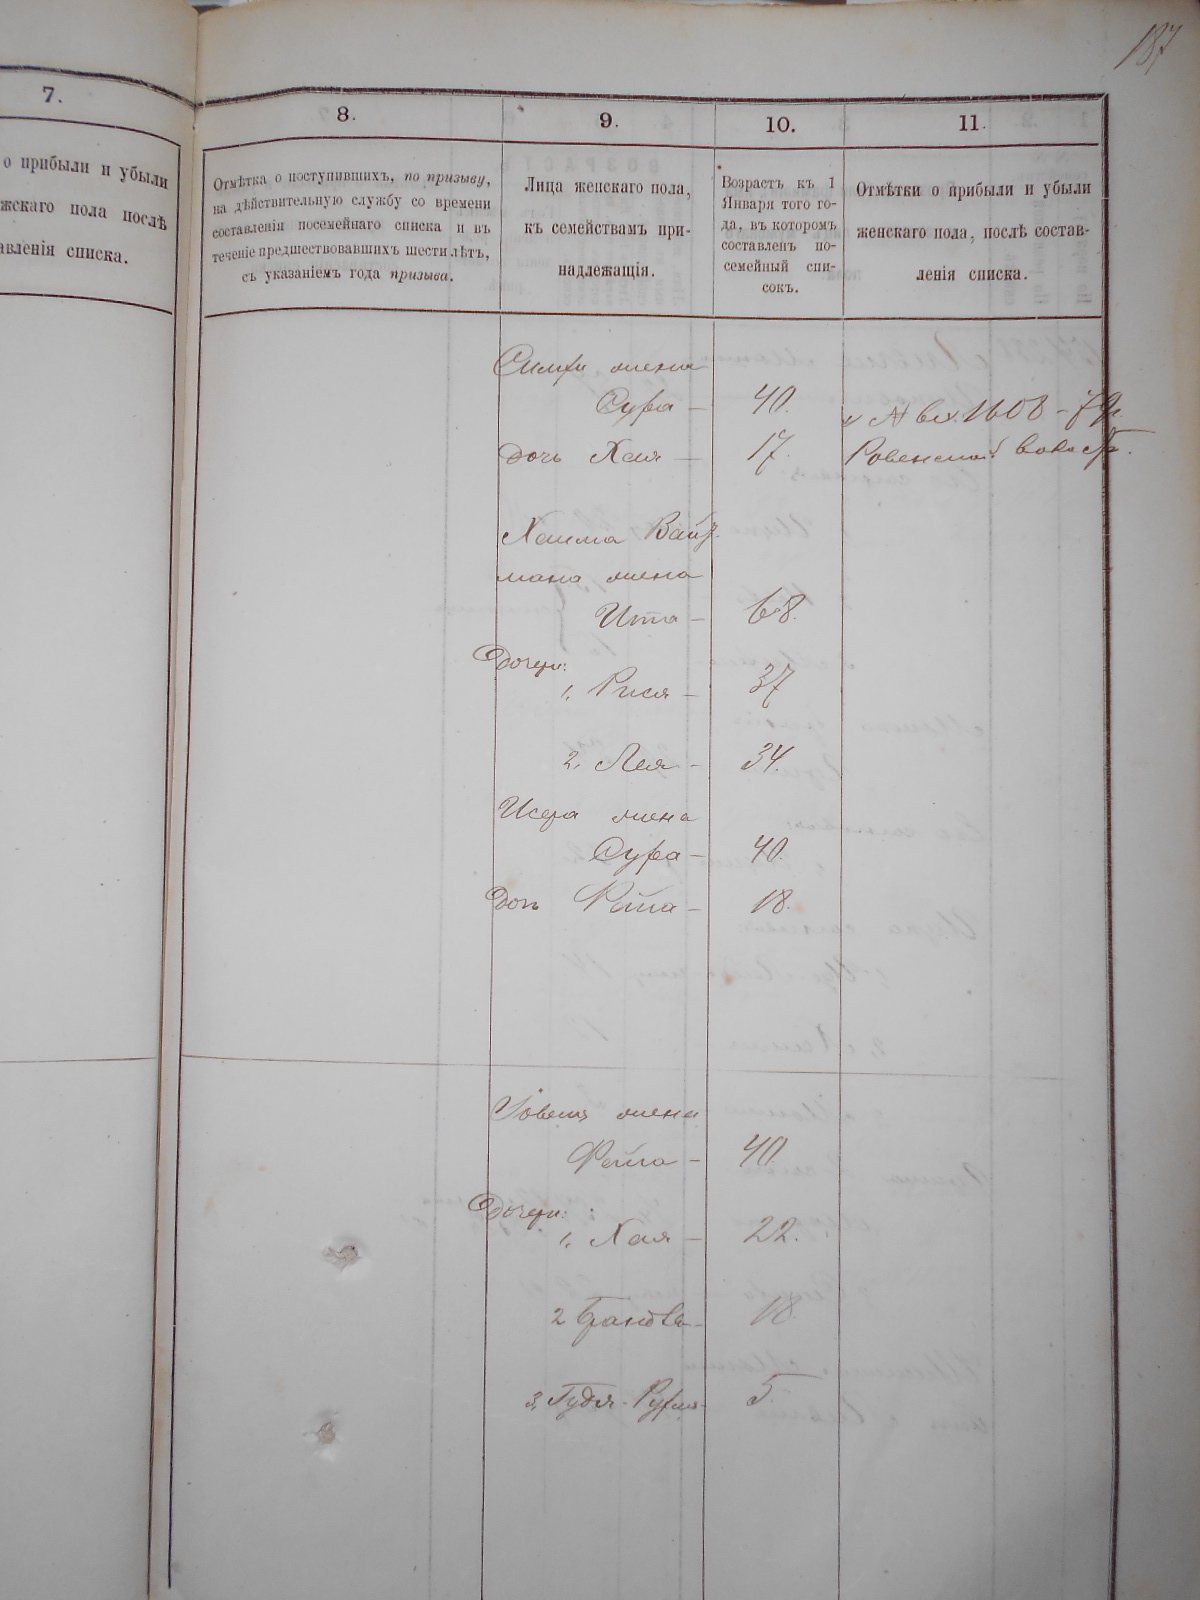 187
7.
о прибыли и убыли
жскаго пола послѣ
авленія списка.
8.
Отмѣтка о поступившихъ, по призыву,
на дѣйствительную службу со времени
составленія посемейнаго списка и въ
теченіе предшествовавшихъ шести лѣтъ,
съ указаніемъ года призыва.
9.
Лица женскаго пола,
къ семействамъ при-
надлежащія.
10.
Возрастъ къ 1
Января того го-
да, въ которомъ
составленъ по-
семейный спи-
сокъ.
11.
Отмѣтки о прибыли и убыли
женскаго пола, послѣ состав-
ленія списка.
жена
Сура – 40.
дочь Хая – 17.
вх. 1608 – 79г.
Ровенской
Хаима Вайз-
мана жена
Ита – 68.
Дочери:
1, Рися – 37
2, Лея – 34.
жена
Сура – 40.
Дочь Фейга – 18.
жена
Фейга – 40.
Дочери:
1, Хая – 22.
2 – 18.
3, Гудя- – 5.